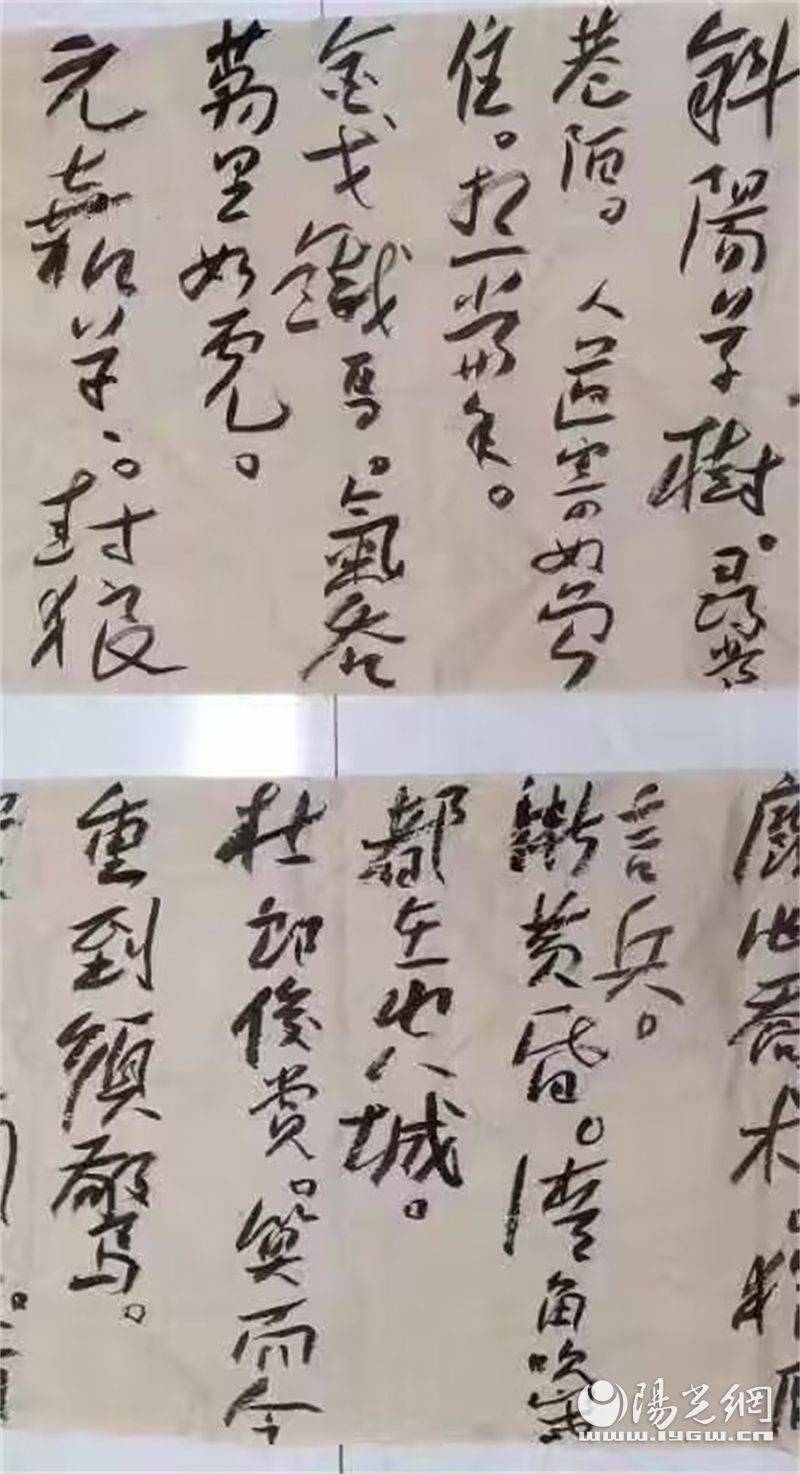 斜陽草樹。尋常
巷陌。人道寄奴曾
住。想當年。
金戈鐵馬。氣吞
萬里如虎。
元嘉草〻。封狼
廢池喬木。猶厭
言兵。
漸黃昏。清角吹寒
都在空城。
杜郎俊賞。算而今
重到須驚。
陽光網
www.iygw.cn